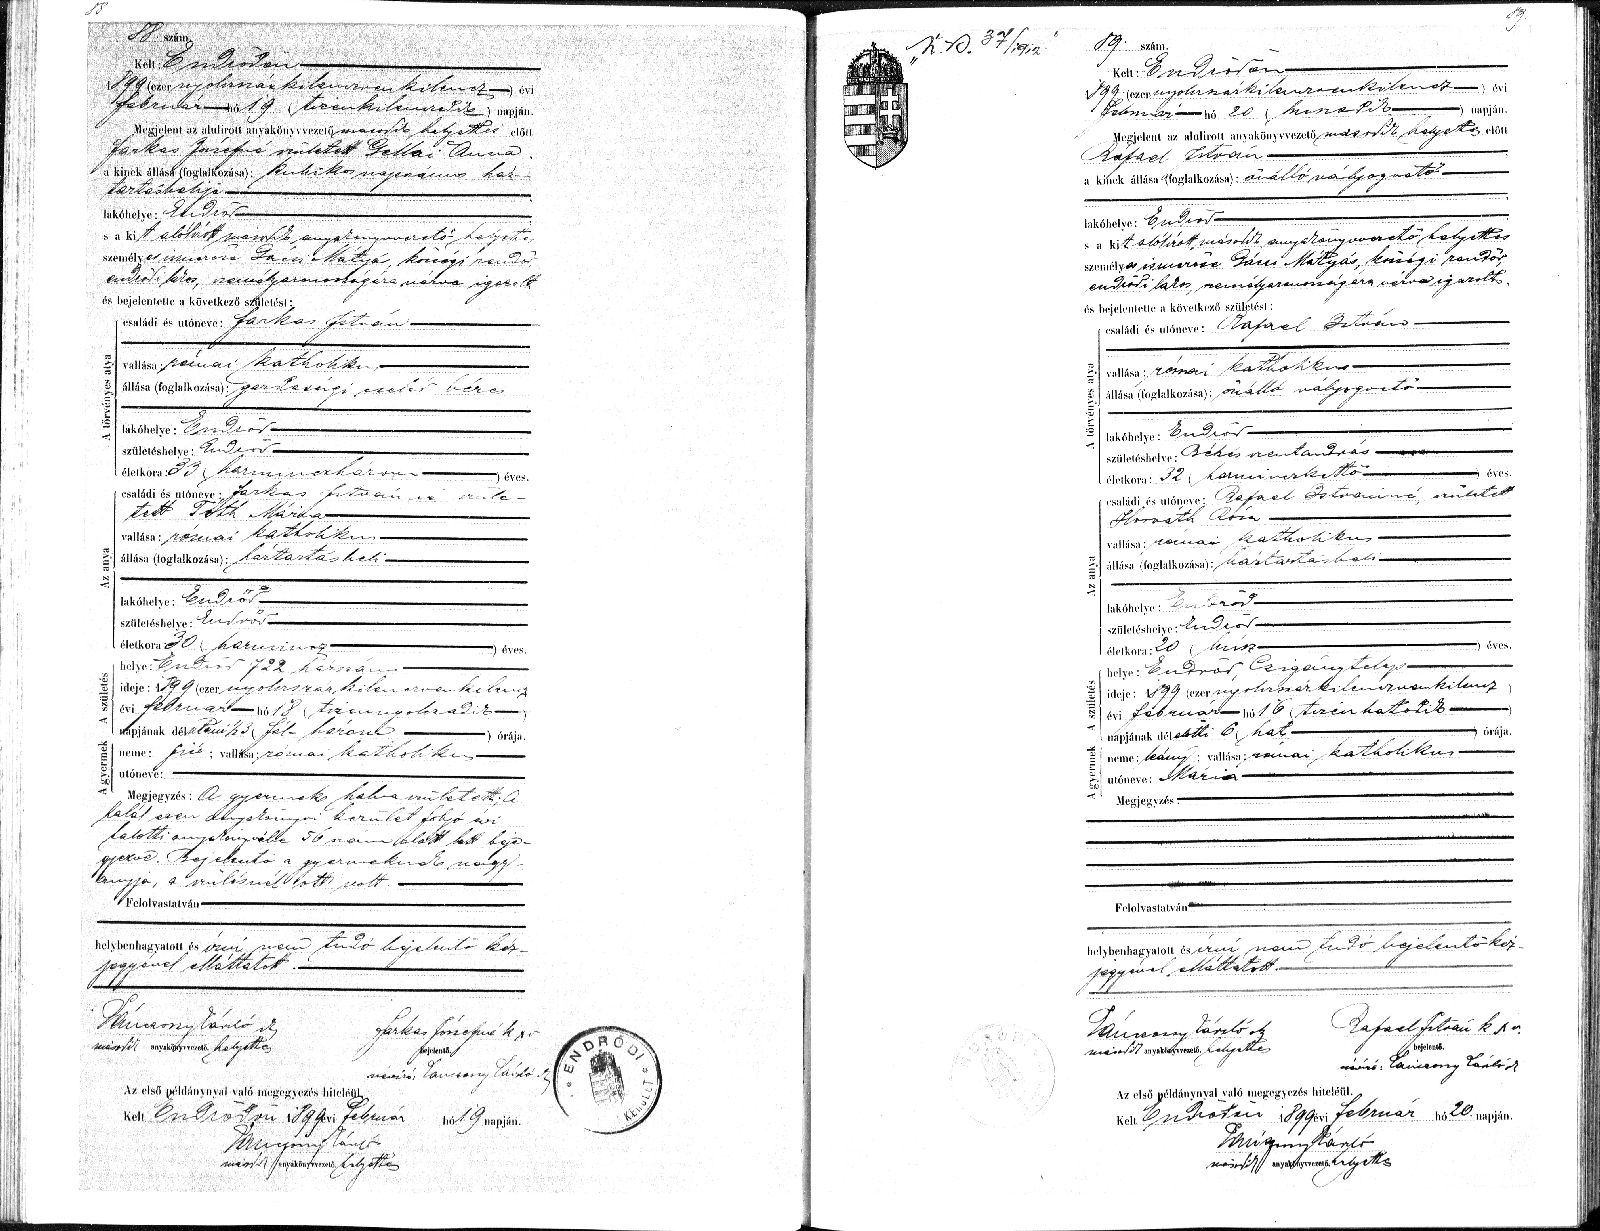 88
88. szám.
Kelt: Endrődön
1899 (ezer nyolcszázkilenczvenkilencz) évi
február hó 19 (tizenkilenczedik) napján.
Megjelent az alulirott anyakönyvvezető második helyettes előtt
Farkas Józsefné született Gellai Anna
a kinek állása (foglalkozása): kubikos napszámos ház-
lakóhelye: Endrőd
s a kit alólirott második anyakönyvvezető helyettes
személyes ismerőse Mátyás, községi rendőr
endrődi lakos, személyazonosságára nézve igazolt
és bejelentette a következő születést:
A törvényes atya
családi és utóneve: Farkas István
vallása: római katholikus
állása (foglalkozása): gazdasági cseléd béres
lakóhelye: Endrőd
születéshelye: Endrőd
életkora: 33 (harminczhárom) éves.
Az anya
családi és utóneve: Farkas Istvánné szüle-
tett Tóth Mária
vallása: római katholikus
állása (foglalkozása): háztartásbeli
lakóhelye: Endrőd
születéshelye: Endrőd
életkora: 30 (harmincz) éves.
A születés
helye: Endrőd 722 házszám
ideje: 1899 (ezer nyolcszázkilenczvenkilencz
évi február hó 18 (tizennyolczadik)
napjának délutáni 1/23 (fél három) órája.
A gyermek
neme: fiú; vallása: római katholikus
utóneve:
Megjegyzés: A gyermek halva született: A
halál eset anyakönyvi kerület folyó évi
halotti anyakönyvébe 56 szám alatt lett beje-
gyezve. Bejelentő a gyermeknek nagy-
anyja, a szülésnél ott volt.
Felolvastatván
helybenhagyatott és írni nem tudó bejelentő kéz-
jegyével elláttatott.
Tánczony László
másodk anyakönyvvezető helyettes
Farkas Józsefné k x v
bejelentő.
névíró: László
ENDRŐDI KERÜLET
Az első példánynyal való megegyezés hiteléül.
Kelt Endrődön 1899 évi február hó 19 napján.
László
másodk anyakönyvvezető helyettes
89
"K. D. 37/1912"
89. szám.
Kelt: Endrődön
1899 (ezer nyolcszázkilenczvenkilencz) évi
február hó 20 (huszadik) napján.
Megjelent az alulirott anyakönyvvezető másodk helyettes előtt
Rafael István
a kinek állása (foglalkozása): önálló vályogvető
lakóhelye: Endrőd
s a kit alólirott másodk anyakönyvvezető helyettes
személyes ismerőse Mátyás, községi rendőr,
endrődi lakos, személyazonosságára nézve igazolt.
és bejelentette a következő születést:
A törvényes atya
családi és utóneve: Rafael István
vallása: római katholikus
állása (foglalkozása): önálló vályogvető
lakóhelye: Endrőd
születéshelye: Békésszentandrás
életkora: 32 (harminczkettő) éves.
Az anya
családi és utóneve: Rafael Istvánné, született
Horváth Róza
vallása: római katholikus
állása (foglalkozása): háztartásbeli
lakóhelye: Endrőd
születéshelye: Endrőd
életkora: 20 (húsz) éves.
A születés
helye: Endrőd, Czigánytelep
ideje: 1899 (ezer nyolcszázkilenczvenkilencz)
évi február hó 16 (tizenhatodik)
napjának délelőtti 6 (hat) órája.
A gyermek
neme: leány; vallása: római katholikus
utóneve: Mária
Megjegyzés:
Felolvastatván
helybenhagyatott és írni nem tudó bejelentő kéz-
jegyével elláttatott.
László
másodk anyakönyvvezető helyettes
Rafael István k x v.
bejelentő.
névíró: László
Az első példánynyal való megegyezés hiteléül.
Kelt Endrődön 1899 évi február hó 20 napján.
László
másodk anyakönyvvezető helyettes